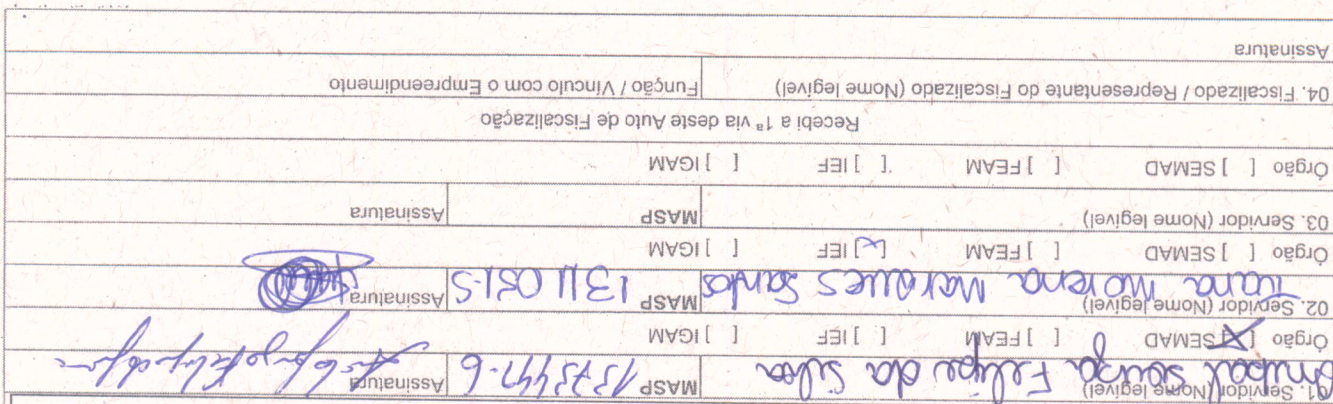 01. Servidor (Nome legível) MASP Assinatura
Souza Felipe da Silva 1373447-6
Órgão [X] SEMAD [ ] FEAM [ ] IEF [ ] IGAM
02. Servidor (Nome legível) MASP Assinatura
Morena Marques Santos 1311051-5
Órgão [ ] SEMAD [ ] FEAM [x] IEF [ ] IGAM
03. Servidor (Nome legível) MASP Assinatura
Órgão [ ] SEMAD [ ] FEAM [ ] IEF [ ] IGAM
Recebi a 1ª via deste Auto de Fiscalização
04. Fiscalizado / Representante do Fiscalizado (Nome legível) Função / Vínculo com o Empreendimento
Assinatura